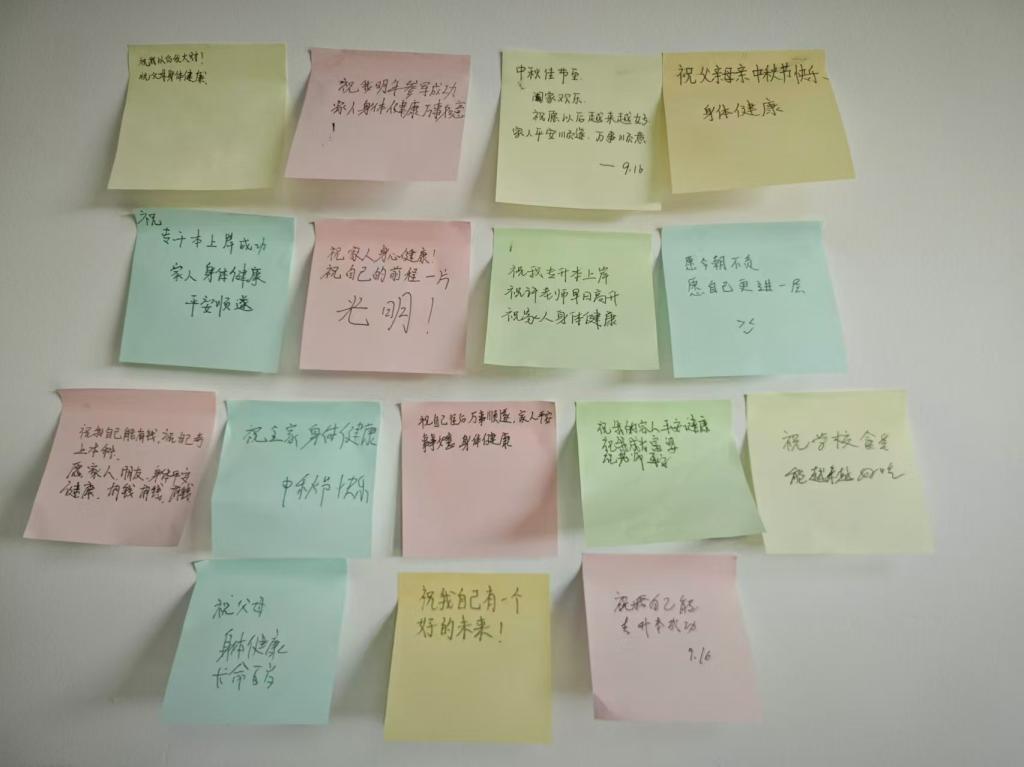 祝我以后发大财!
祝父母身体健康!
祝我明年参军成功
家人身体健康万事
!
中秋佳节至
阖家欢乐.
祝愿以后越来越好
家人平安顺遂,万事顺意
— 9.16
祝父亲母亲中秋节快乐、
身体健康
祝
专升本上岸成功
家人身体健康
平安顺遂
祝家人身心健康!
祝自己的前程一片
光明!
祝我专升本上岸
祝许老师早日高升
祝家人身体健康
愿今朝不负
愿自己更进一层
祝我自己能有钱,祝自己考
上本科.
愿家人、朋友、身体平安
健康.有钱 有钱 有钱
祝全家身体健康
中秋节快乐
祝自己往后万事顺遂,家人平安
身体健康
祝我的家人平安健康
祝我成富婆
祝老师
祝学校食堂
能越来越好吃
祝父母
身体健康
长命百岁
祝我自己有一个
好的未来!
祝我自己能
专升本成功
9.16